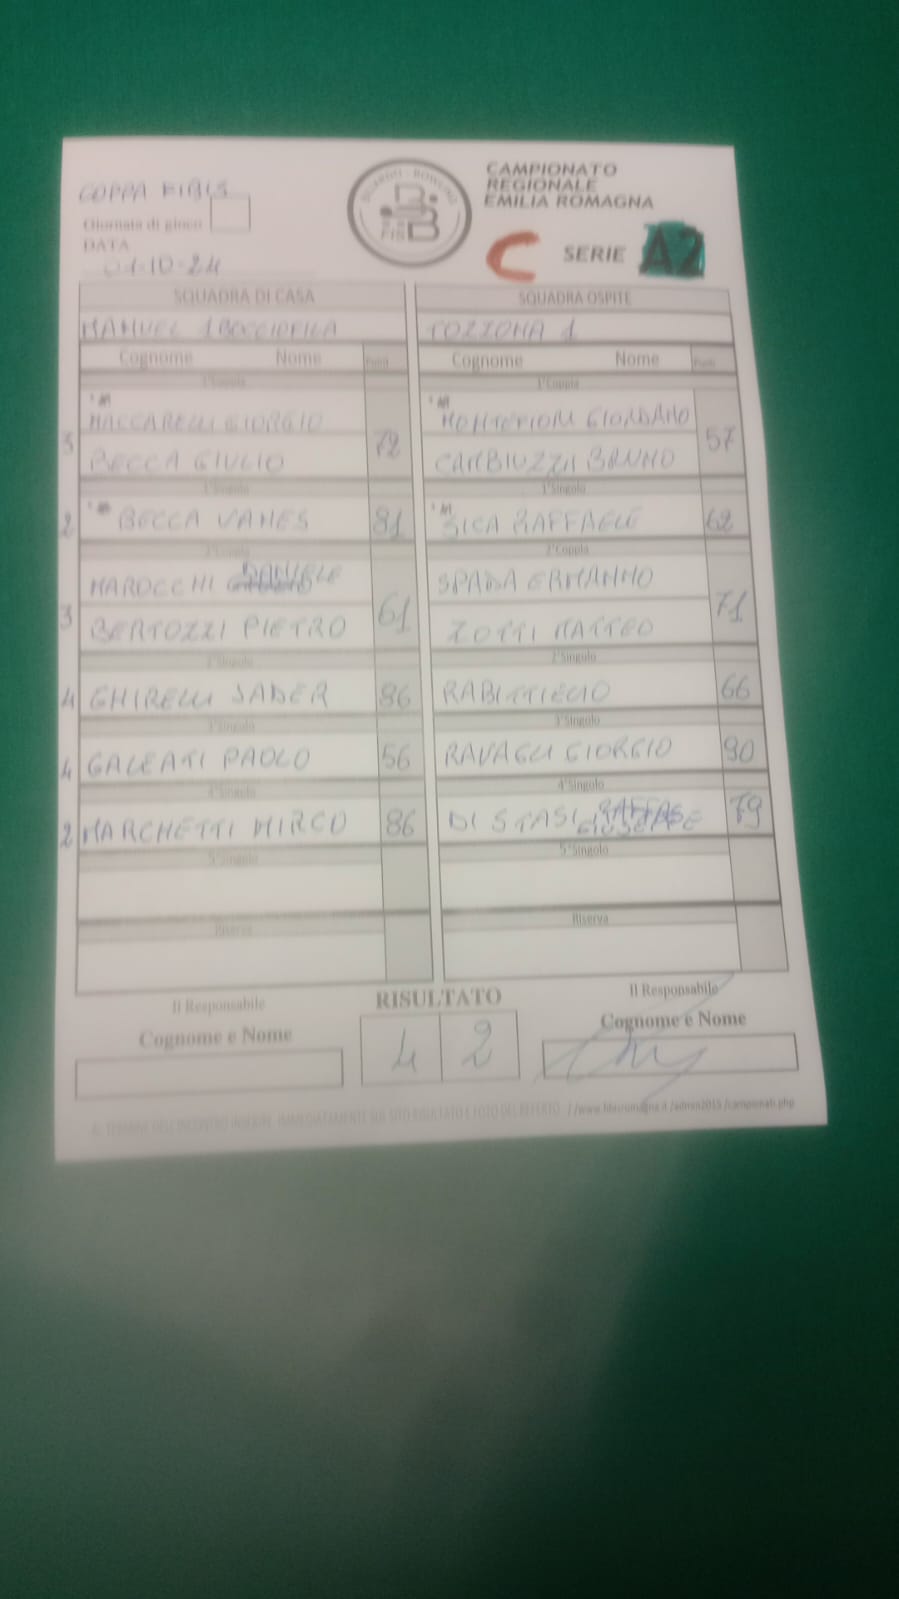 COPPA FIBIS
Giornata di gioco
DATA
01-10-24
BILIARDI - BOWLING
FISBB
CAMPIONATO
REGIONALE
EMILIA ROMAGNA
C SERIE A2
SQUADRA DI CASA
MANUEL 1 BOCCIOFILA
Cognome Nome Punti
1°Coppia
MACCARELLI GIORGIO
3 BECCA GIULIO 72
1°Singolo
2 BECCA VANES 81
2°Coppia
MAROCCHI DANIELE
3 BERTOZZI PIETRO 61
2°Singolo
4 GHIRELLI SADER 86
3°Singolo
4 GALEATI PAOLO 56
4°Singolo
2 MARCHETTI MIRCO 86
5°Singolo
Riserva
SQUADRA OSPITE
TOZZONA 1
Cognome Nome Punti
1°Coppia
GIORDANO
BRUNO 57
1°Singolo
SICA RAFFAELE 62
2°Coppia
SPADA ERMANNO
ZOTTI MATTEO 71
2°Singolo
66
3°Singolo
RAVAGLI GIORGIO 90
4°Singolo
DI STASI GIUSEPPE 79
5°Singolo
Riserva
Il Responsabile
Cognome e Nome
RISULTATO
4 2
Il Responsabile
Cognome e Nome
AL TERMINE DELL'INCONTRO INSERIRE IMMEDIATAMENTE SUL SITO RISULTATO E FOTO DEL REFERTO